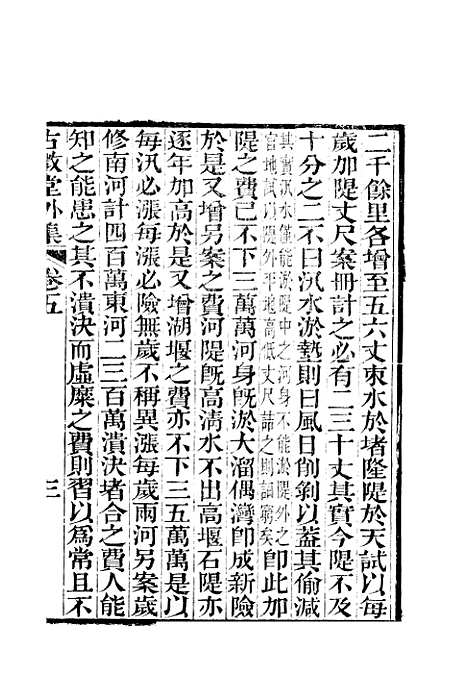 二千餘里各增至五六丈束水於堵隆隄於天試以每
歲加隄丈尺案冊計之必有二三十丈其實今隄不及
十分之二不曰汎水淤墊則曰風日削剝以蓋其偷減
其實汎水僅能淤隄中之河身不能淤隄外之
官地試以隄外平地高低丈尺詰之則詞窮矣
卽此加
隄之費已不下三萬萬河身旣淤大溜偶灣卽成新險
於是又增另案之費河隄旣高淸水不出高堰石隄亦
逐年加高於是又增湖堰之費亦不下三五萬萬是以
每汛必漲每漲必險無歲不稱異漲每歲兩河另案歲
修南河計四百萬東河二三百萬潰決堵合之費人能
知之能患之其不潰決而虛糜之費則習以爲常且不
古微堂外集
卷五
三